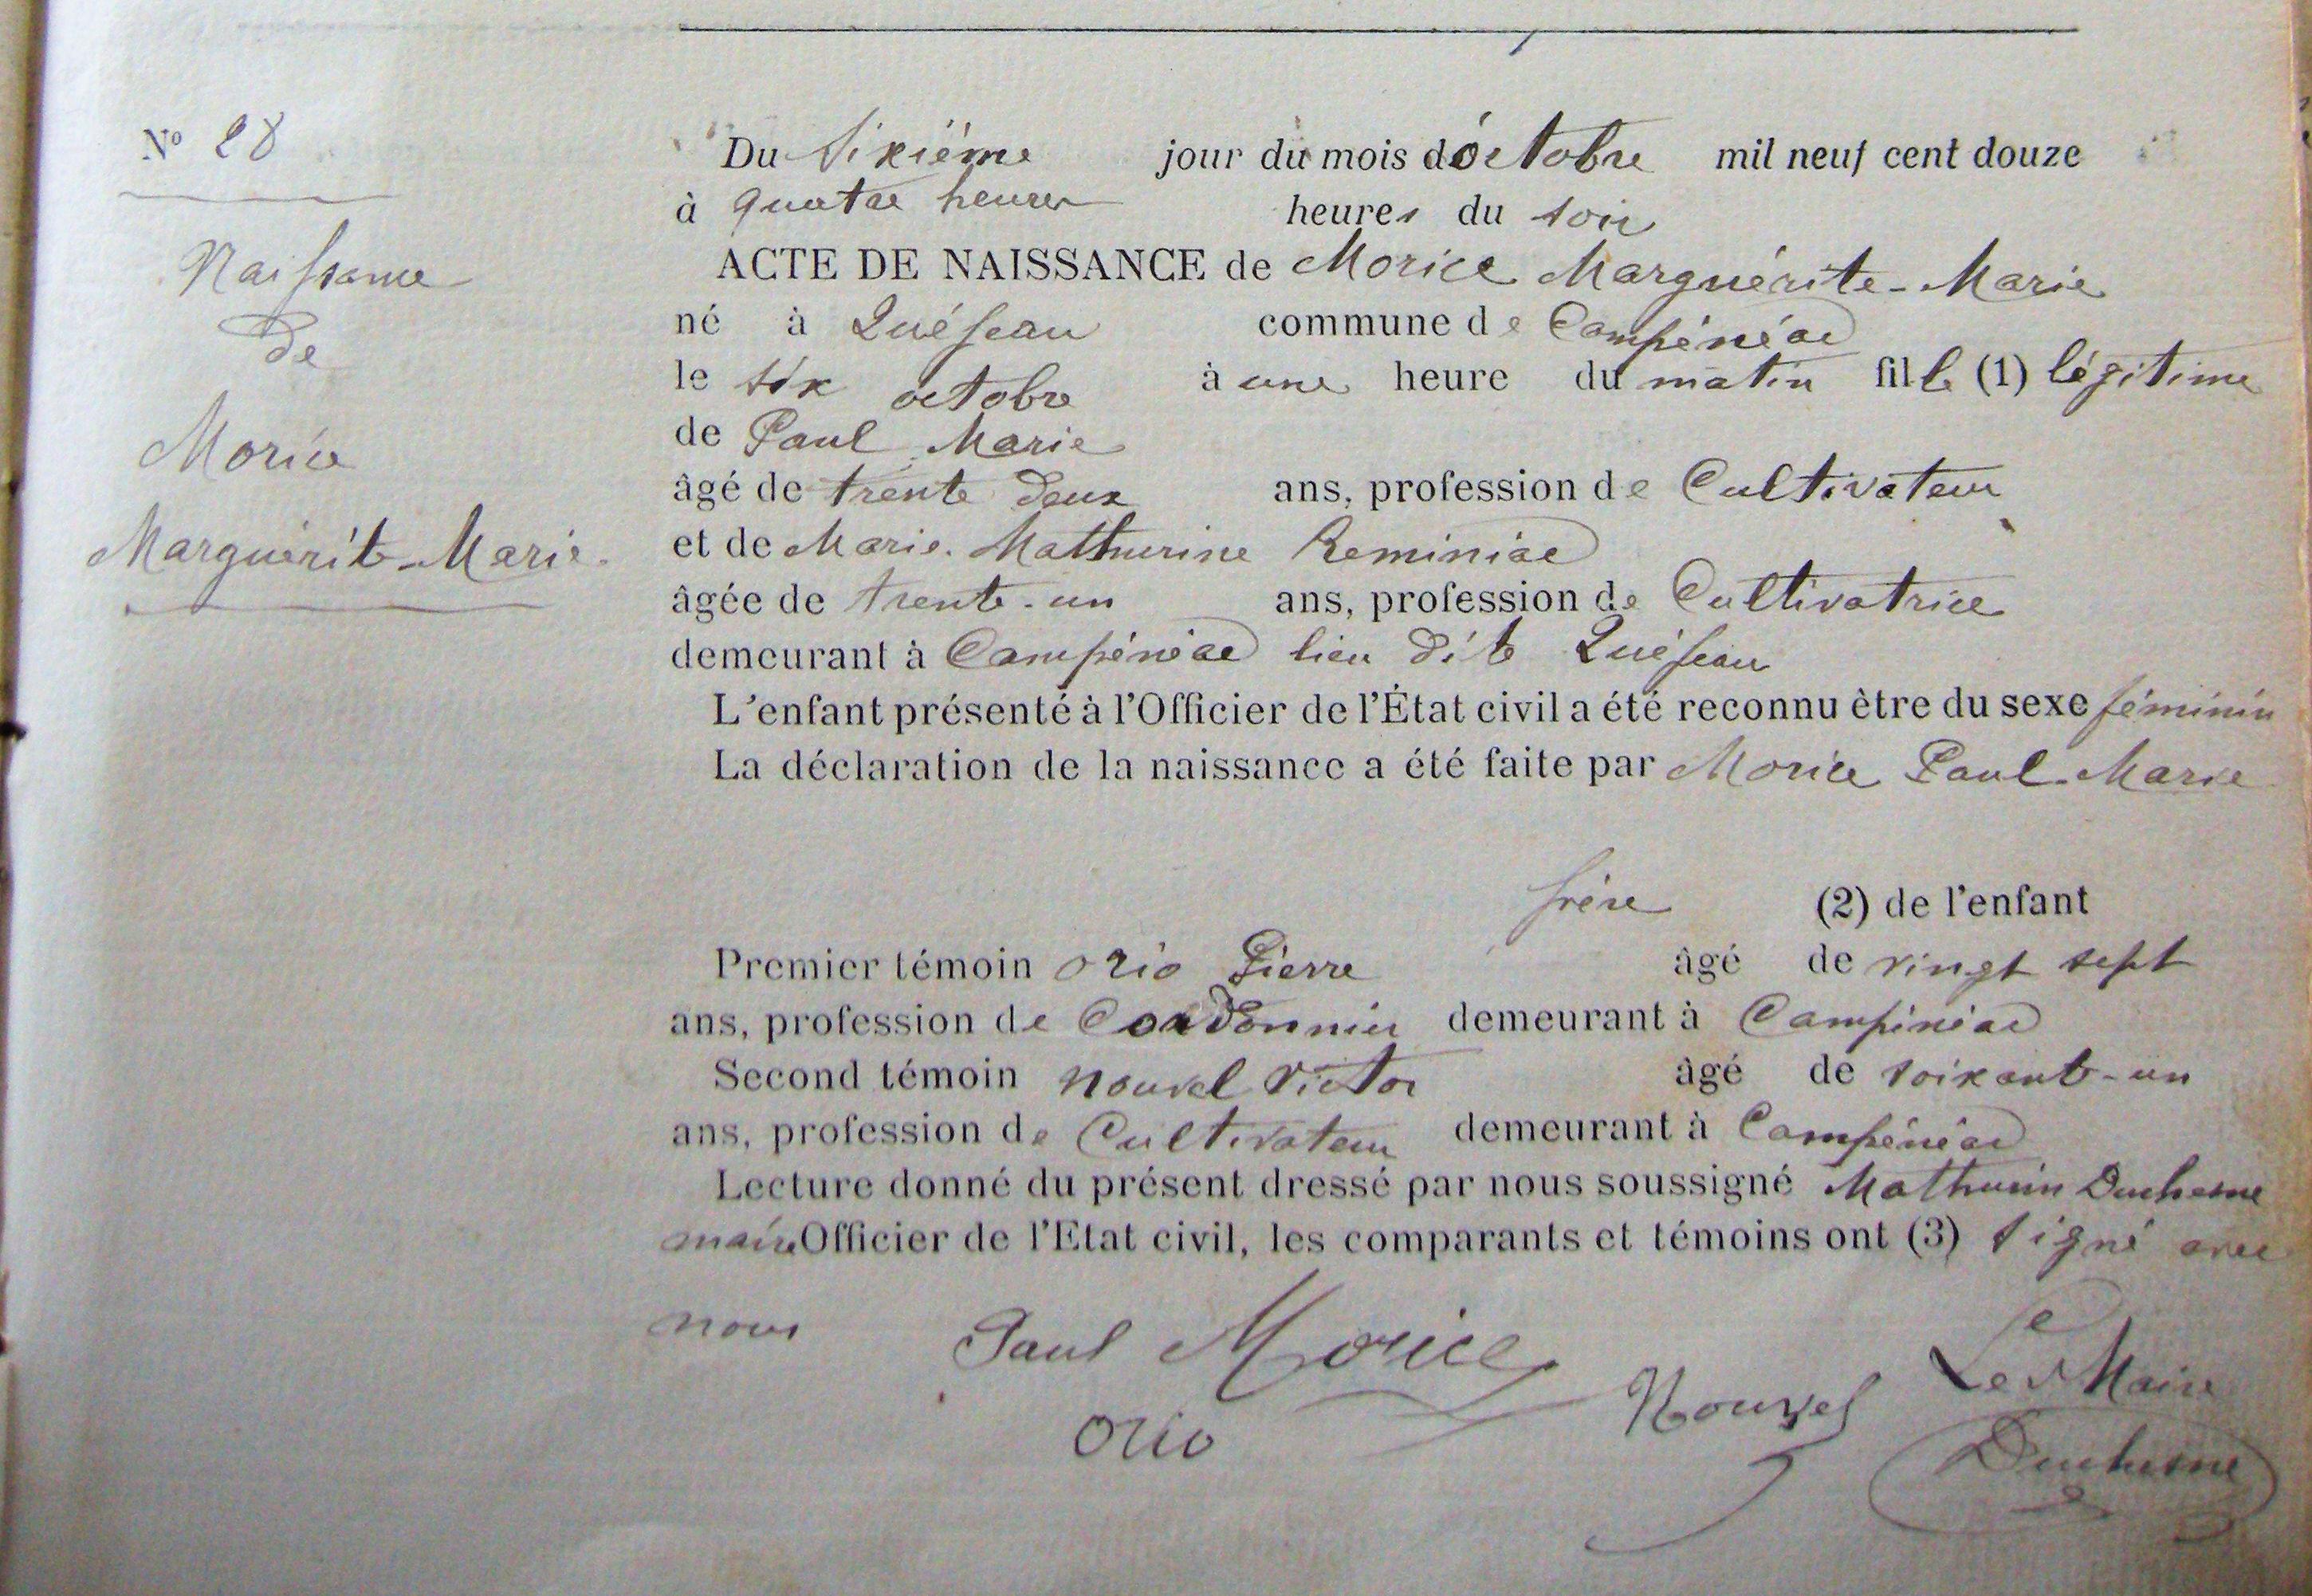 Nº 28
Naissance
de
Morice
Marguérite-Marie.
Du Sixiéme jour du mois d'óctobre mil neuf cent douze
à quatre heures heures du soir
ACTE DE NAISSANCE de Morice Marguérite-Marie
né à Quéjeau commune de Campénéac
le six octobre à une heure du matin fille (1) légitime
de Paul Marie
âgé de trente deux ans, profession de Cultivateur
et de Marie. Mathurine Reminiac
âgée de trente-un ans, profession de Cultivatrice
demeurant à Campénéac lieu dite Quéjeau
L'enfant présenté à l'Officier de l'État civil a été reconnu être du sexe féminin
La déclaration de la naissance a été faite par Morice Paul-Marie
frére (2) de l'enfant
Premier témoin Orio Pierre âgé de vingt sept
ans, profession de Cordonnier demeurant à Campénéac
Second témoin Nouvel Victor âgé de soixante-un
ans, profession de Cultivateur demeurant à Campénéac
Lecture donné du présent dressé par nous soussigné Mathurin Duchesne
maire Officier de l'Etat civil, les comparants et témoins ont (3) signé avec
nous Paul Morice Le Maire
Orio Nouvel Duchesne